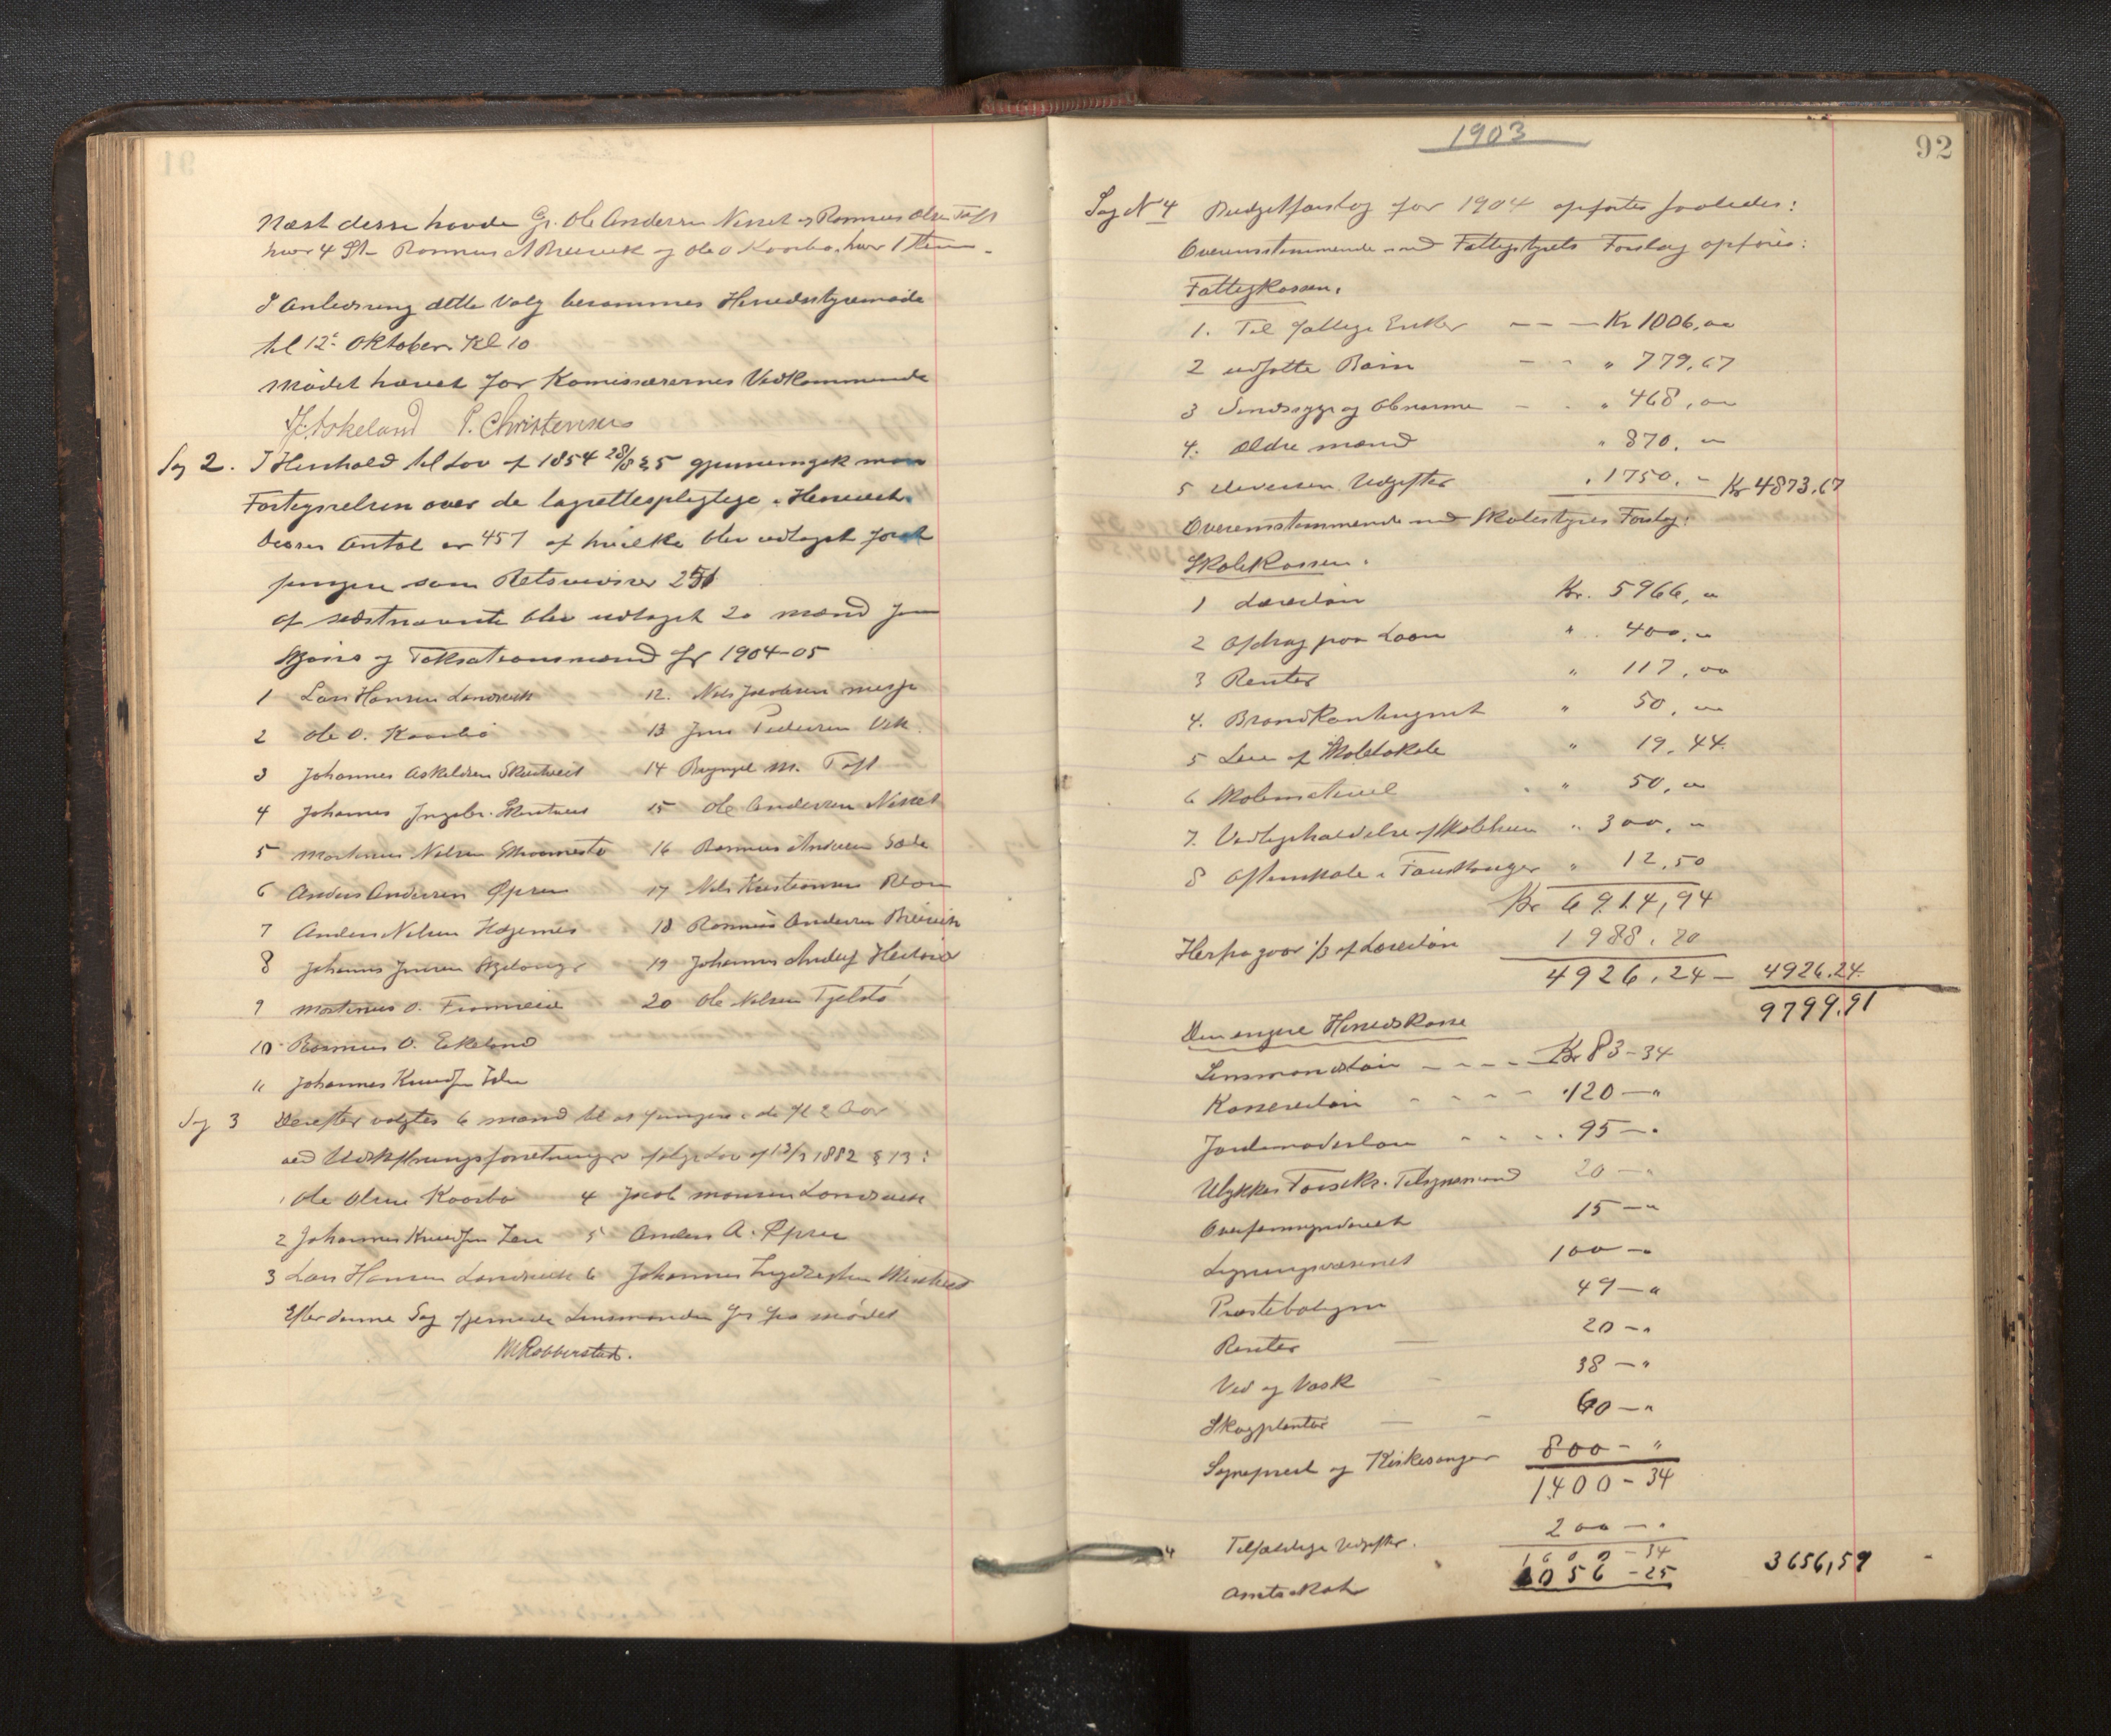 91
Næst desse havde Gr. Ole Andersen Nesset og Rasmus Olsen Toft
hver 4 St. Rasmus A Breivik og Ole O Kaarbø hver 1 Stem
I Anledning dette Valg berammes Herredsstyremøde
til 12te Oktober Kl 10
Mødet hævet for Komissærernes Vedkommende
Askeland P. Christensen
Sag 2. I Henhold til Lov af 1854 28/8 § 5 gjennemgik man
Fortegnelsen over de lagrettespligtige i Herredet.
Deres Antal er 457 af hvilke blev udtaget for at
fungere som Retsvidner 251
af sidstnævnte blev udtaget 20 mænd som
Skjøns og Taksationsmænd for 1904-05
1 Lars Hansen Landsvik 12. Nels Jacobsen
2 Ole O. Kaarbø 13 Jens Pedersen Vik
3 Johannes Askeldsen Skutveit 14 Brynjel M. Toft
4 Johannes Ingebr. Skutveit 15 Ole Andersen Nesset
5 Martinus Nelsen 16 Rasmus Andersen Sæle
6 Anders Andersen Øpsen 17 Nels Kristiansen
7 Anders Nelsen Hagenes 18 Rasmus Andersen Breivik
8 Johannes Jensen 19 Johannes Andersen
9 Martinus O. Fromreide 20 Ole Nelsen Tjelstø
10 Rasmus O. Eikeland
11 Johannes Knudsen
Sag 3 Derefter valgtes 6 mænd til at fungere i de f. 2 Aar
ved Udskiftningsforretninger ifølge Lov af 13/3 1882 § 13:
1 Ole Olsen Kaarbø 4 Jacob Monsen Landsvik
2 Johannes Knudsen 5 Anders A. Øpsen
3 Lars Hansen Landsvik 6 Johannes Skutveit
Efter denne Sag fjernede Lensmanden sig fra mødet
M Robberstad.
1903
92
Sag N 4 Budgetforslag for 1904 opførtes saaledes:
Overensstemmende med Fattigstyrets Forslag opføres:
Fattigkassen.
1. Til fattige Enker — — — Kr 1006,00
2 udsatte Børn — - " 779,67
3 Sindssyge og Abnorme - - " 468,00
4. Ældre mænd " 870, "
5 diverse Udgifter " 1750. - Kr 4873.67
Overensstemmende med Skolestyres Forslag:
Skolekassen.
1 Lærerløn Kr. 5966, "
2 Afdrag paa Laan " 400, "
3 Renter " 117,00
4. Brandkontingent " 50, "
5 Leie af Skolelokale " 19.44
6 Skolemateriel " 50, "
7. Vedligeholdelse af Skolehuse " 300, "
8 Aftenskole i " 12,50
Kr 6914,94
Herfra gaar 1/3 af Lærerløn 1988.70
4926.24 — 4926.24.
9799.91
Den engere Herredskasse
Lensmandsløn - - - - Kr 83-34
Kassererløn - - - - " 120 — "
Jordemoderløn - - - - 95 — "
Ulykkes Forsikr. Tilsynsmænd 20 — "
Overformynderiet 15 — "
Ligningsvæsenet 100 — "
Præsteboligen 49 — "
Renter 20 — "
Ved og Vask 38 — "
Skogplanter 60 — "
Sognepræst og Kirkesanger 800 — "
1400 - 34
Tilfældige Udgifter. 200 — "
1600 - 34
Amtsskat 2056 - 25 3656,59